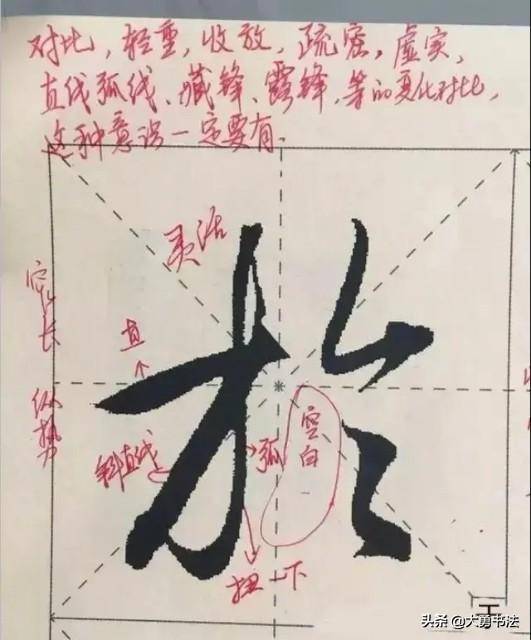 对比，轻重，收放，疏密，虚实，
直线弧线、藏锋、露锋，等的变化对比，
这种意识一定要有．
灵活
窄长
纵势
直
於
斜直线
弧
空白
扭一下
头条 @大勇书法